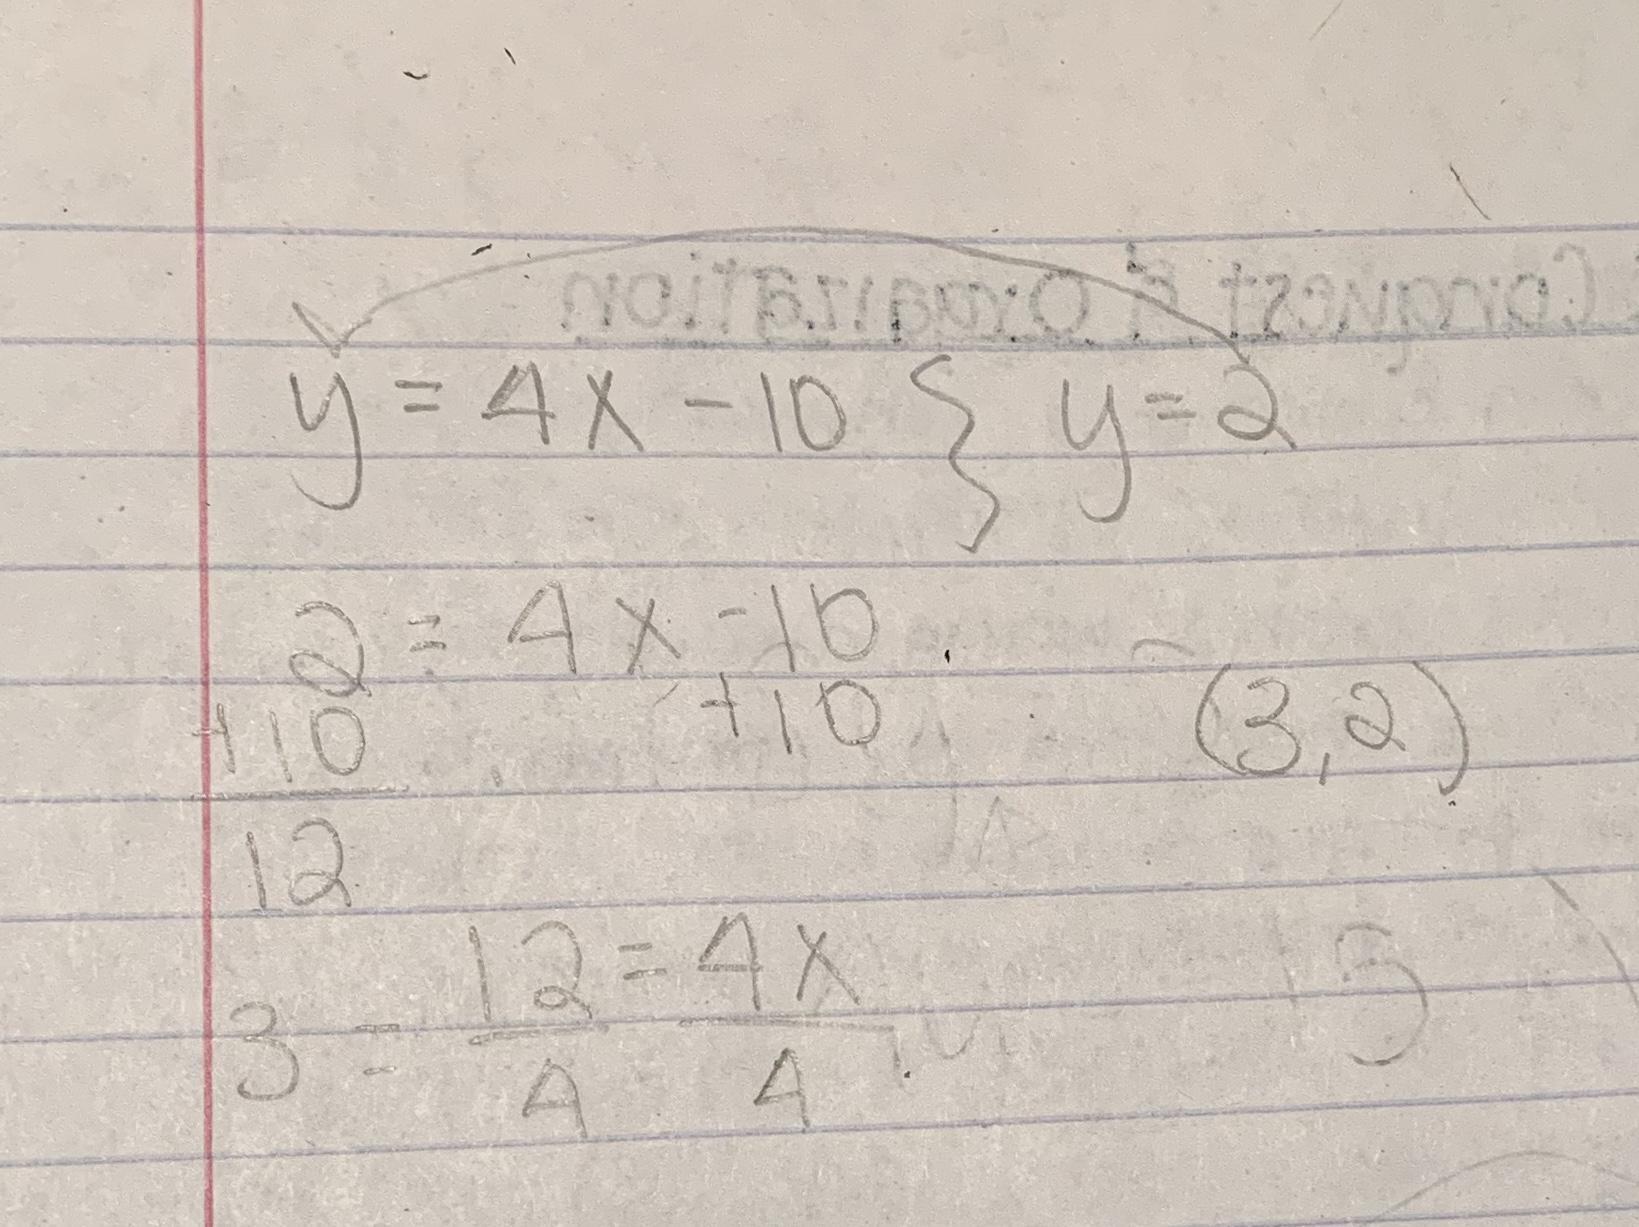 Conquest & Organization
y = 4x - 10 } y = 2
2 = 4x - 10
+10 +10 (3,2)
12
12 = 4x
3 = 4 4